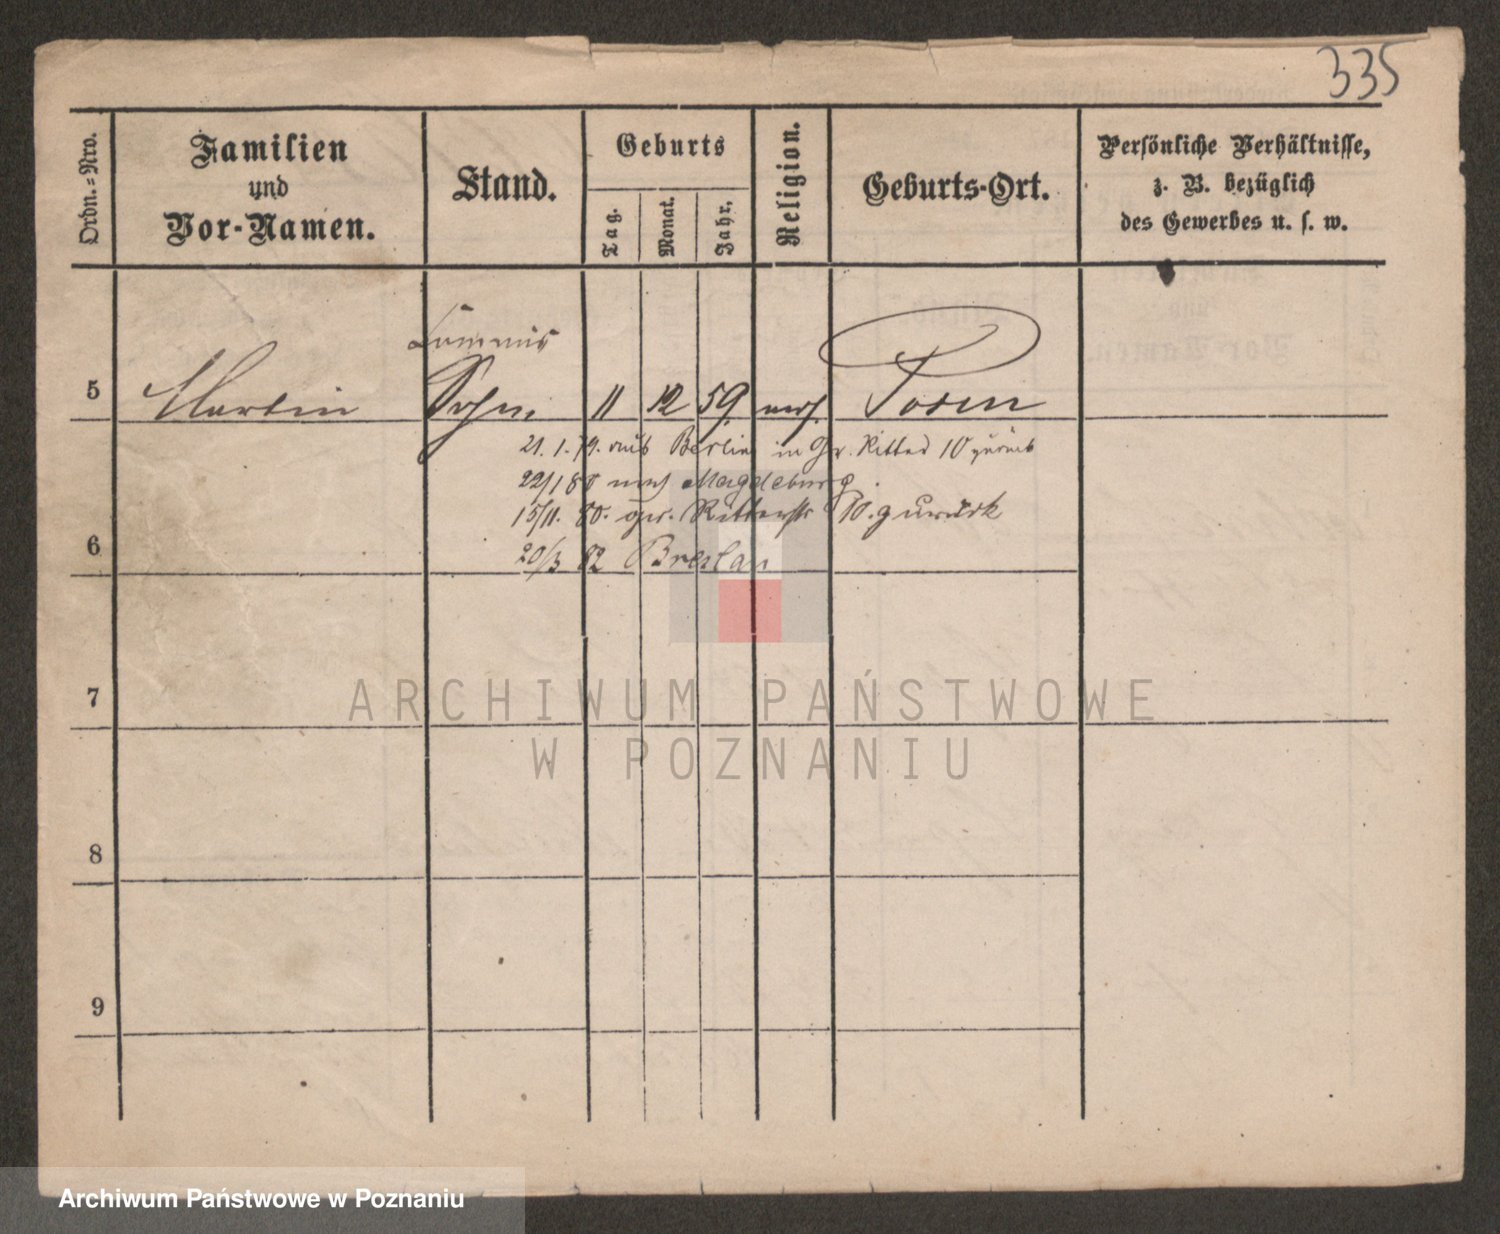 335
Ordn.-Nro.
Familien
und
Vor-Namen.
Stand.
Geburts
Tag.
Monat.
Jahr.
Religion.
Geburts-Ort.
Persönliche Verhältnisse,
z. B. bezüglich
des Gewerbes u. s. w.
Commis
5 Martin Sohn 11 12 59 mos. Posen
21. 1. 79. aus Berlin in Gr. Ritterst 10 zurück
22/1 80 nach Magdeburg.
15/11. 80. Ritterstr 10. zurück
6
20/3 82 Breslau
7
ARCHIWUM PAŃSTWOWE
W POZNANIU
8
9
Archiwum Państwowe w Poznaniu